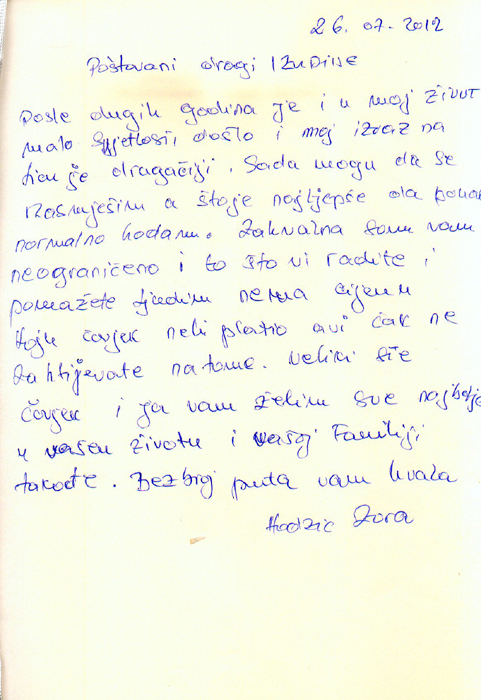 26.07.2012
Poštovani dragi Izudine
Posle dugih godina je i u moj život
malo svjetlosti došlo i moj izraz na
licu je drugačiji. Sada mogu da se
nasmješim a štoje najljepše da
normalno hodam. Zahvalna sam vam
neograničeno i to što vi radite i
pomažete ljudim nema cijenu
koju čovjek nebi platio a vi čak ne
zahtijevate na tome. Veliki ste
čovjek i ja vam želim sve najbolje
u vašem životu i vašoj Familiji
takođe. Bezbroj puta vam hvala
Hodzic Zora